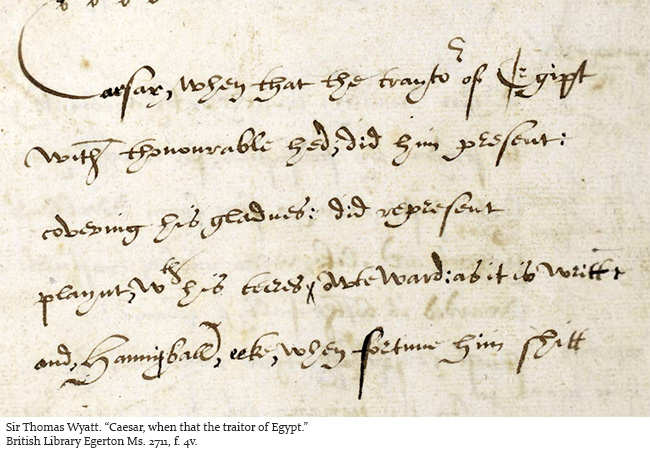 Caesar, when that the traytor of Egipt
with thonourable hed, did him present:
covering his gladnes: did represent
playnt, wth his teres owteward: as it is writt
and, Hannyball, eeke, when fortune him shitt
Sir Thomas Wyatt. “Caesar, when that the traitor of Egypt.”
British Library Egerton Ms. 2711, f. 4v.